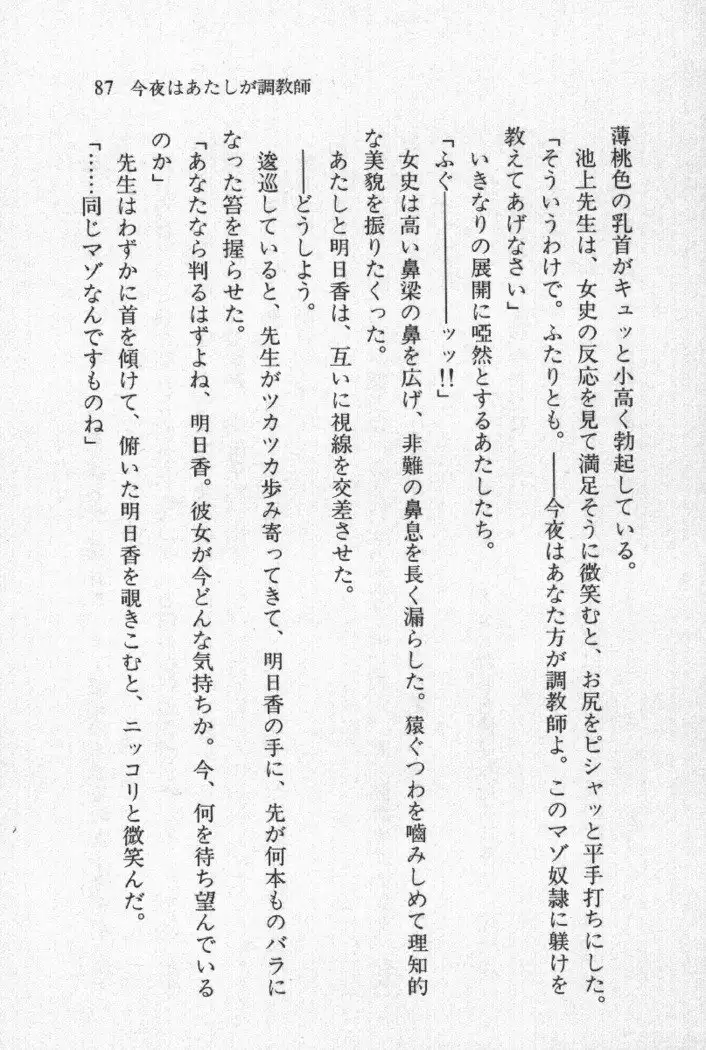 87 今夜はあたしが調教師
薄桃色の乳首がキュッと小高く勃起している。
池上先生は、女史の反応を見て満足そうに微笑むと、お尻をピシャッと平手打ちにした。
「そういうわけで。ふたりとも。――今夜はあなた方が調教師よ。このマゾ奴隷に躾けを
教えてあげなさい」
いきなりの展開に啞然とするあたしたち。
「ふぐ――――――ッッ!!」
女史は高い鼻梁の鼻を広げ、非難の鼻息を長く漏らした。猿ぐつわを嚙みしめて理知的
な美貌を振りたくった。
あたしと明日香は、互いに視線を交差させた。
――どうしよう。
逡巡していると、先生がツカツカ歩み寄ってきて、明日香の手に、先が何本ものバラに
なった笞を握らせた。
「あなたなら判るはずよね、明日香。彼女が今どんな気持ちか。今、何を待ち望んでいる
のか」
先生はわずかに首を傾けて、俯いた明日香を覗きこむと、ニッコリと微笑んだ。
「……同じマゾなんですものね」